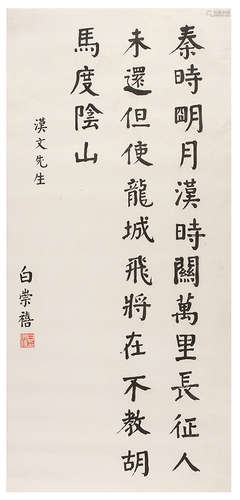 秦時明月漢時關萬里長征人
未還但使龍城飛將在不教胡
馬度陰山
漢文先生
白崇禧